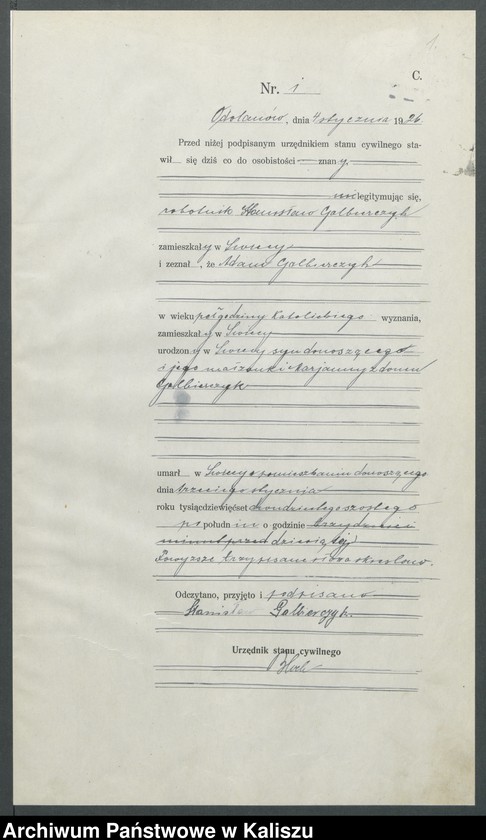 1.
C.
Nr. 1
Odolanów, dnia 4 stycznia 1926.
Przed niżej podpisanym urzędnikiem stanu cywilnego sta-
wił się dziś co do osobistości znany.
nie legitymując się,
robotnik Stanisław Galbierczyk
zamieszkały w
i zeznał, że Adam Galbierczyk
w wieku pół godziny Katolickiego wyznania,
zamieszkały w
urodzony w syn donoszącego
i jego małżonki Marjanny z domu
Galbierczyk
umarł w pomieszkaniu donoszącego
dnia trzeciego stycznia
roku tysiącdziewięćset dwudziestego szóstego
po południu o godzinie trzydzieści
minut przed dziewiątej
Powyższe trzy pisane słowa określono.
Odczytano, przyjęto i podpisano
Stanisław Galberczyk.
Urzędnik stanu cywilnego
Archiwum Państwowe w Kaliszu